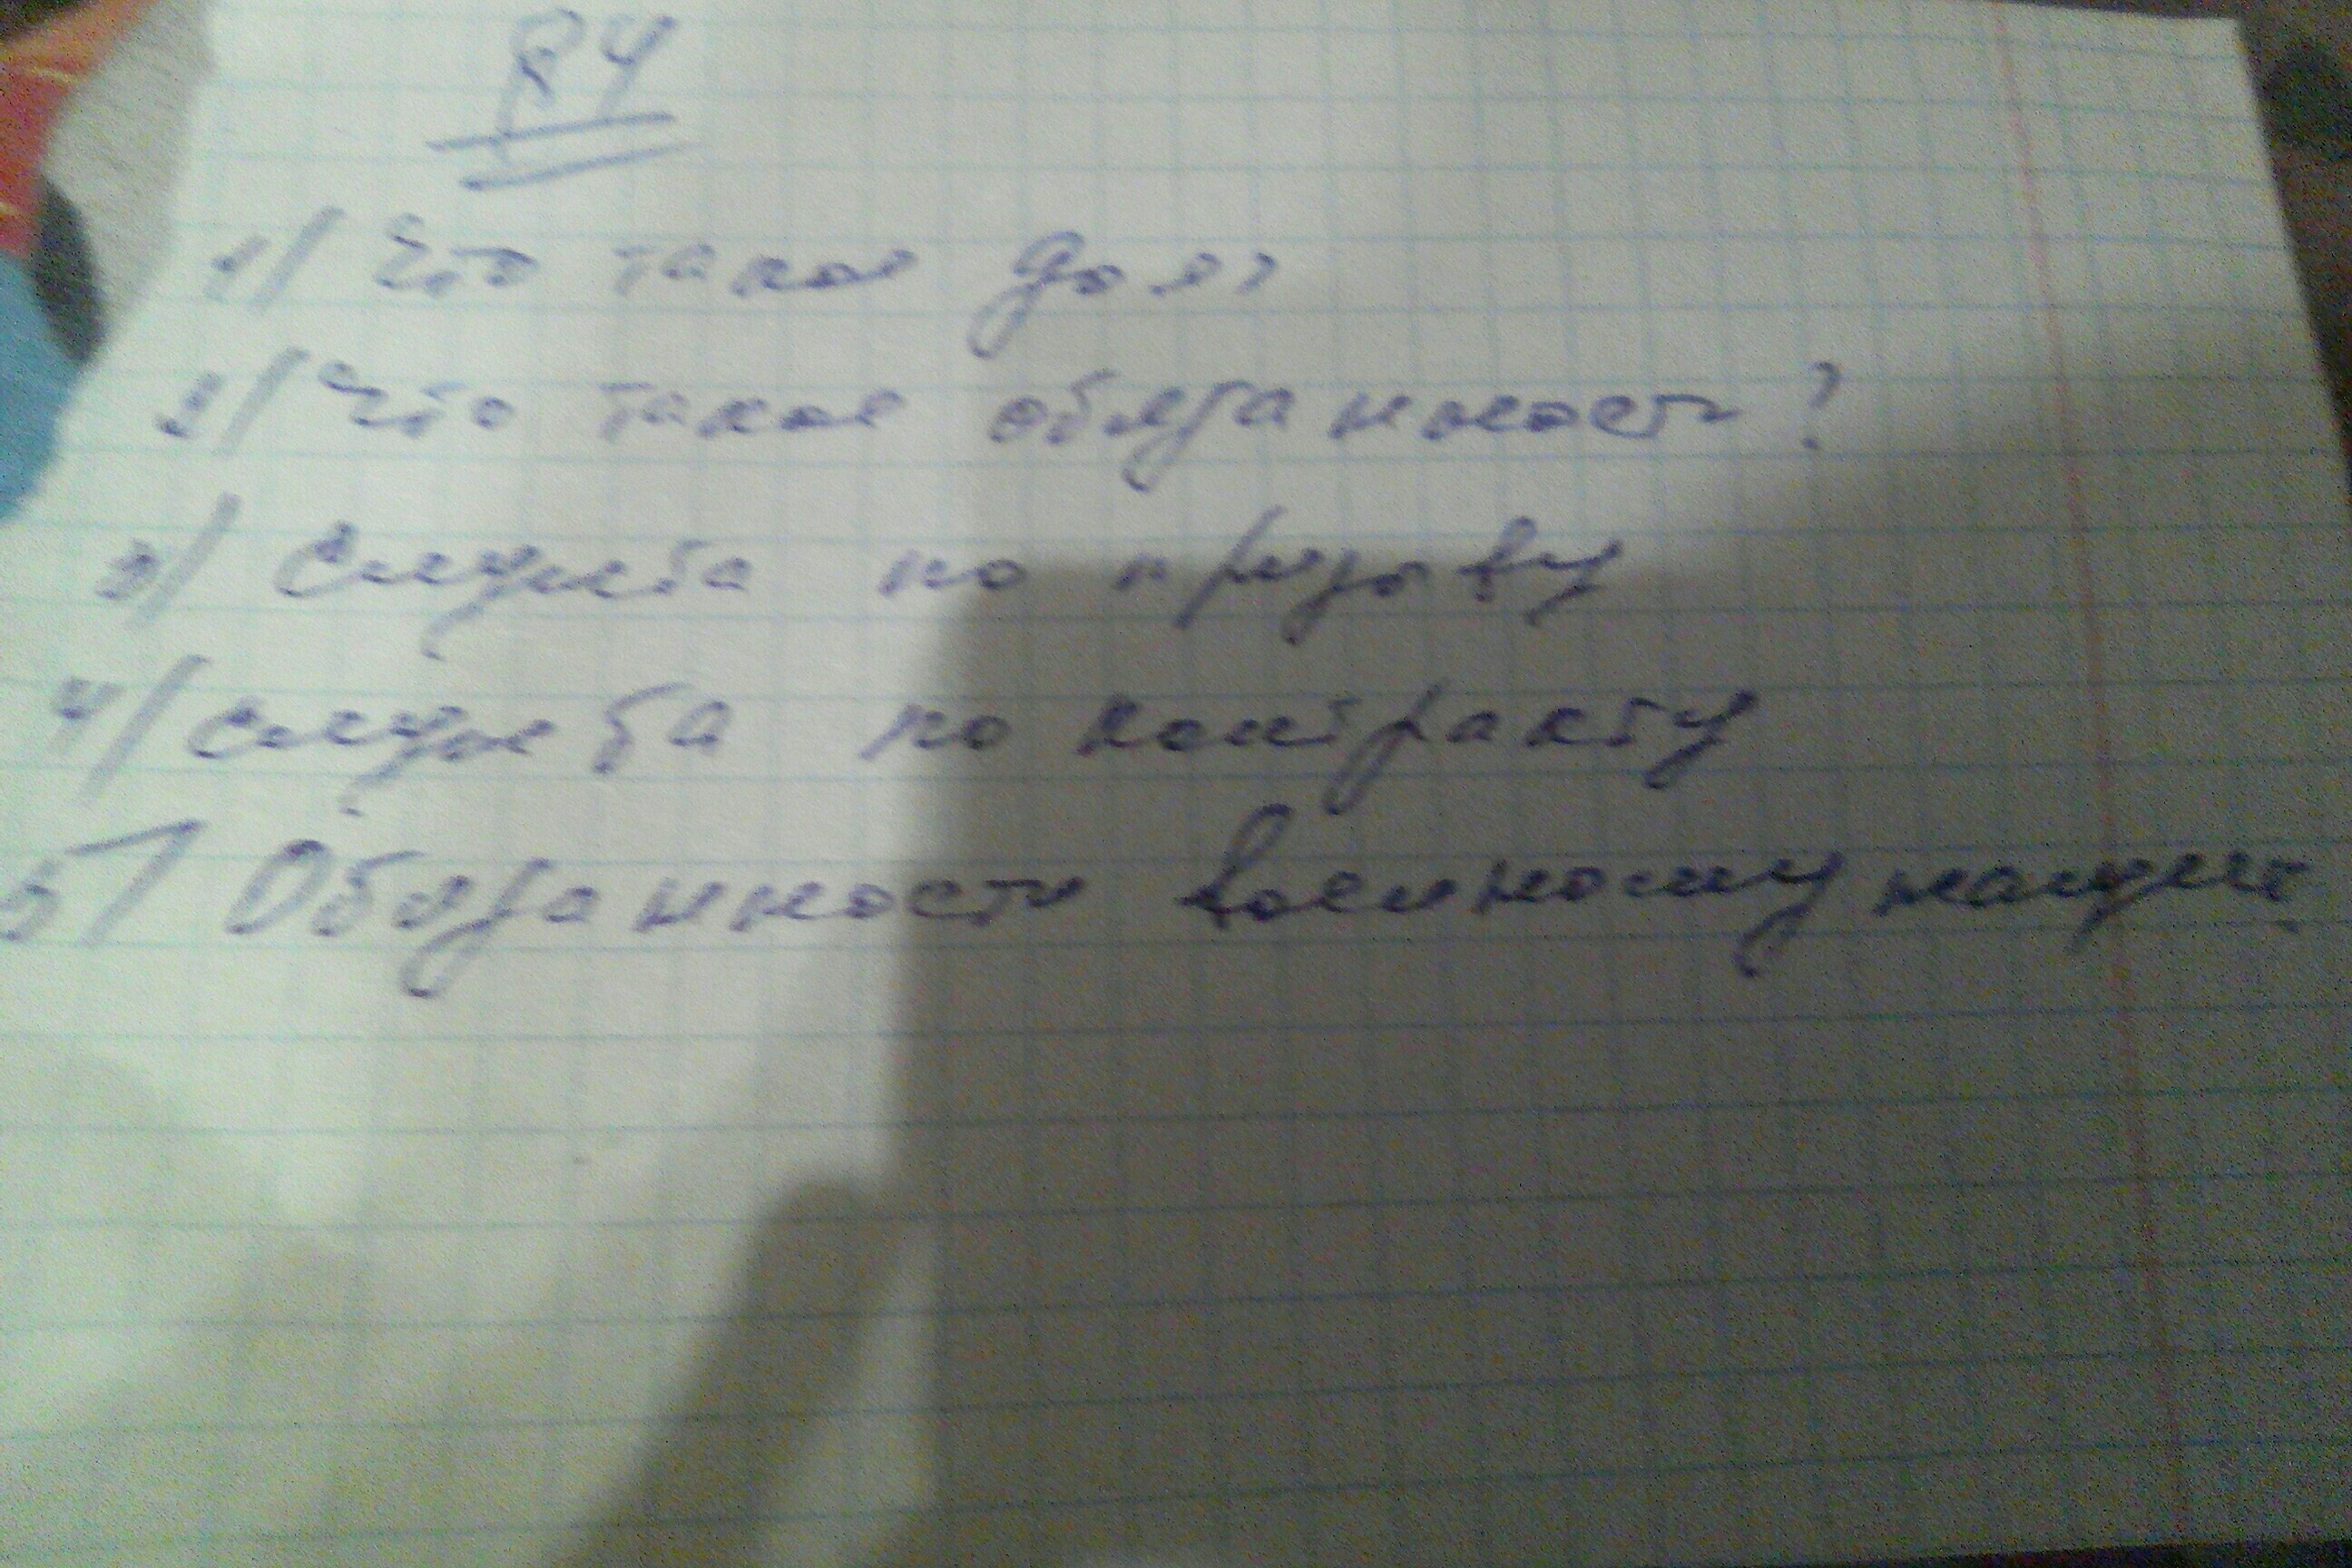 §4
1) Что такое долг
2) Что такое обязанность?
3) Служба по призыву
4) Служба по контракту
5) Обязанности военному